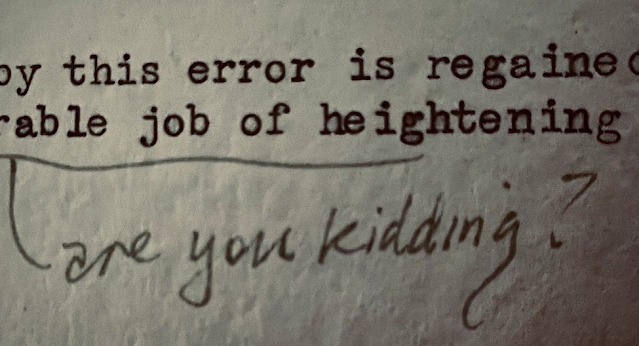 by this error is regained
rable job of heightening
are you kidding?